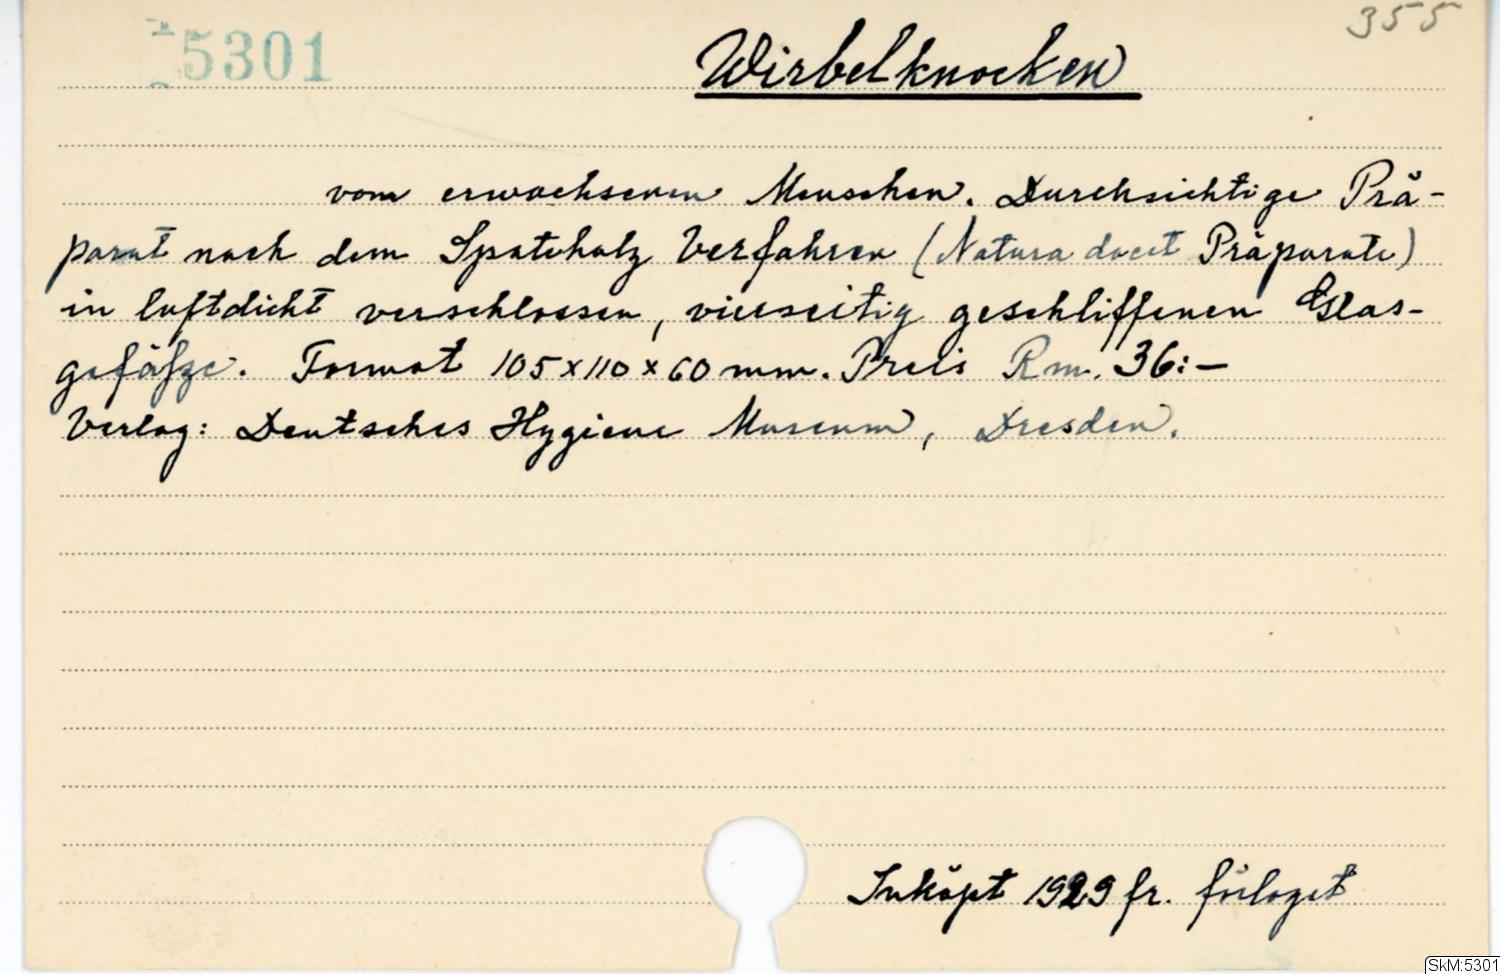 5301
355
Wirbelknocken
vom erwachsenen Menschen. Durchsichtige Prä-
parat nach dem Spateholz Verfahren (Natura docet Präparate)
in luftdicht verschlossen, vierseitig geschliffenen Glas-
gefäfze. Format 105 x 110 x 60 mm. Preis Rm. 36:-
Verlag: Deutsches Hygiene Museum, Dresden.
Inköpt 1929 fr. förlaget
SkM:5301